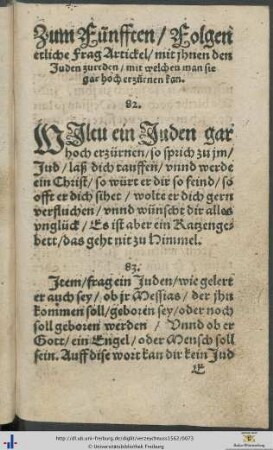 Zum Fünfften / Folgen
etliche Frag Artickel / mit jhnen den
Juden zureden / mit welchen man sie
gar hoch erzürnen kan.
82.
WIltu ein Juden gar
hoch erzürnen / so sprich zu jm /
Jud / laß dich tauffen / vnnd werde
ein Christ / so würt er dir so feind / so
offt er dich sihet / wolte er dich gern
verfluchen / vnnd wünscht dir alles
vnglück / Es ist aber ein Katzenge-
bett / das geht nit zu Himmel.
83.
Item / frag ein Juden / wie gelert
er auch sey / ob jr Messias / der jhn
kommen söll / geboren sey / oder noch
soll geboren werden / Vnnd ob er
Gott / ein Engel / oder Mensch soll
sein. Auff dise wort kan dir kein Jud
E
http://dl.ub.uni-freiburg.de/diglit/verzeychnuss1562/0073
© Universitätsbibliothek Freiburg